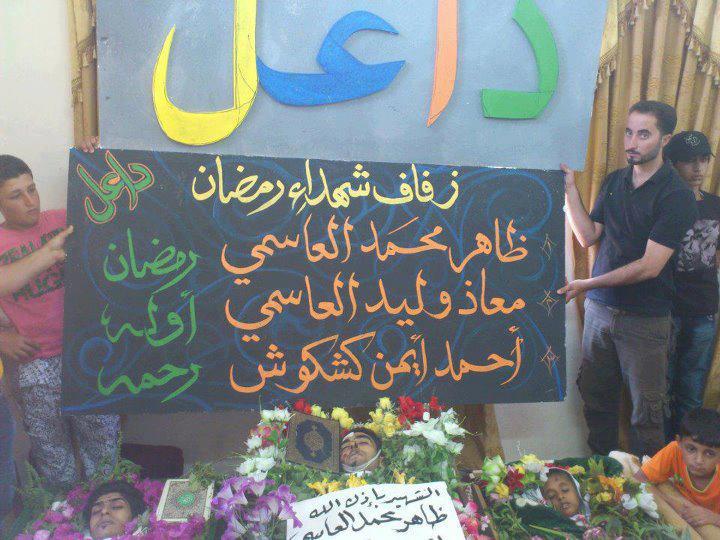 داعل
داعل
زفاف شهداء رمضان
ظاهر محمد العاسمي
معاذ وليد العاسمي
أحمد أيمن كشكوش
رمضان
أوله
رحمه
الشهيد بإذن الله
ظاهر محمد العاسمي